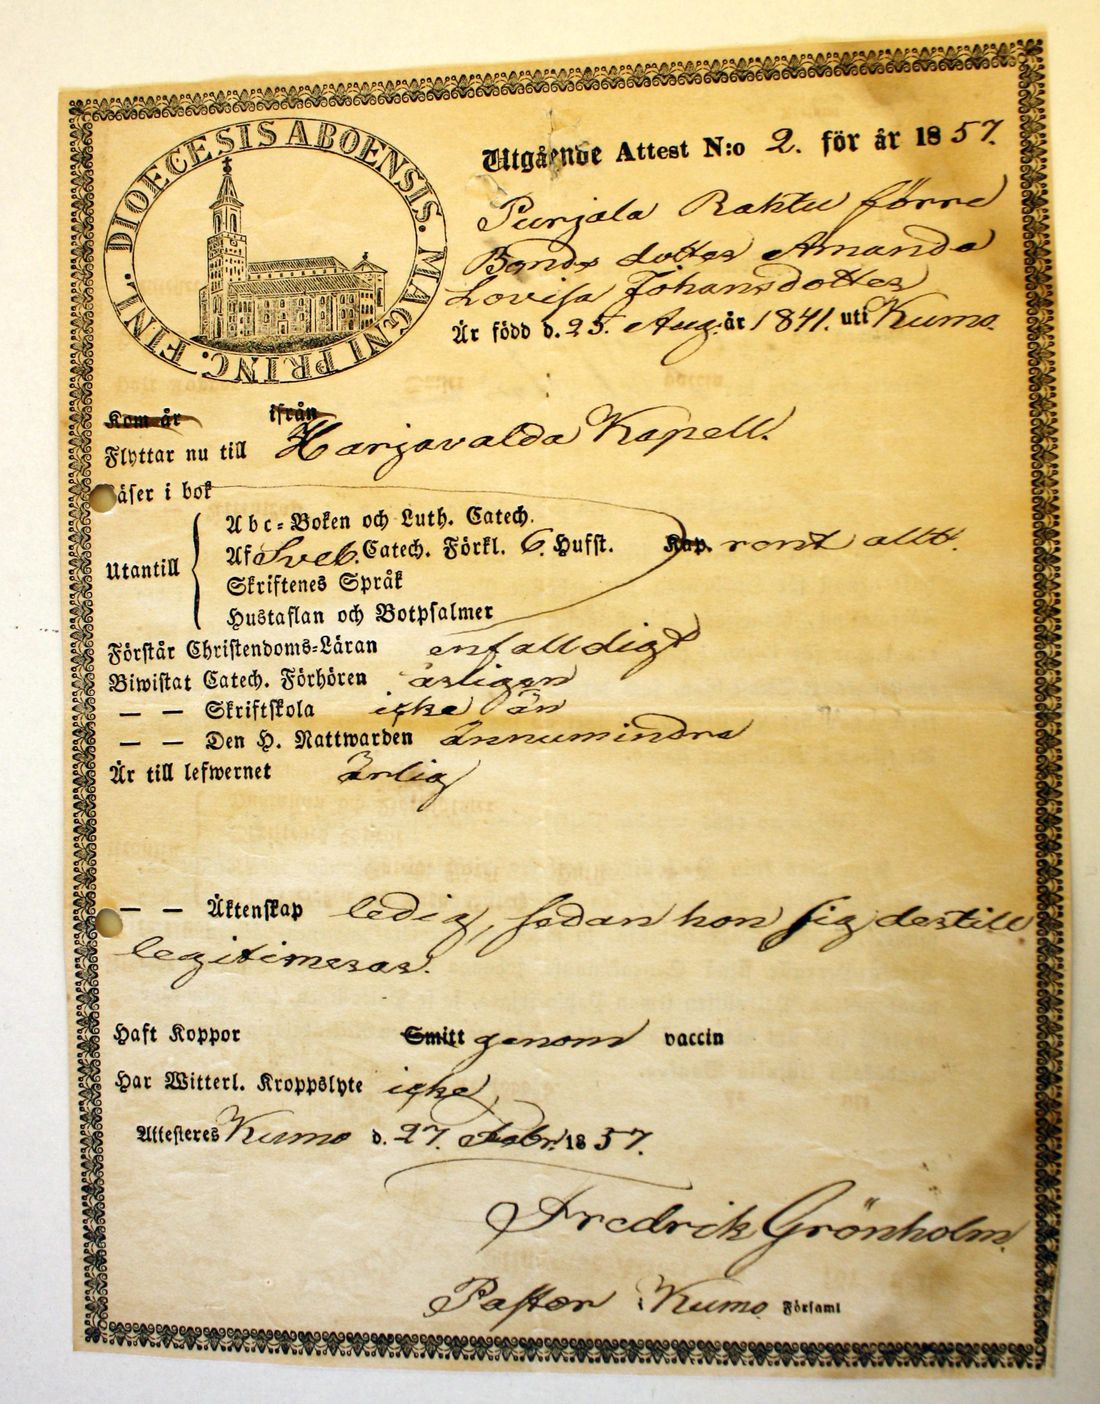 DIOECESIS ABOENSIS. MAGNI PRINC. FINL.
Utgående Attest N:o 2. för år 1857.
Purjala Rahtu förre
Bonde dotter Amanda
Lovisa Johansdotter
Är född d. 25. Aug. år 1841. uti Kumo.
Kom år ifrån
Flyttar nu till Harjavalda Kapell.
Läser i bok
Utantill
Abc-Boken och Luth. Catech.
Af Sveb. Catech. Förkl. 6. Hufst. Kap. rent allt.
Skriftenes Språk
Hustaflan och Botpsalmer
Förstår Christendoms-Läran enfalldigt
Biwistat Catech. Förhören årligen
— — Skriftskola icke än
— — Den H. Nattwarden ännumindre
Är till lefwernet ärlig
— — Äktenskap ledig, sedan hon sig dertill
legitimerar.
Haft Koppor Smitt genom vaccin
Har Witterl. Kroppslyte icke,
Attesteres Kumo d. 27. Febr. 1857.
Fredrik Grönholm.
Pastor i Kumo Församl